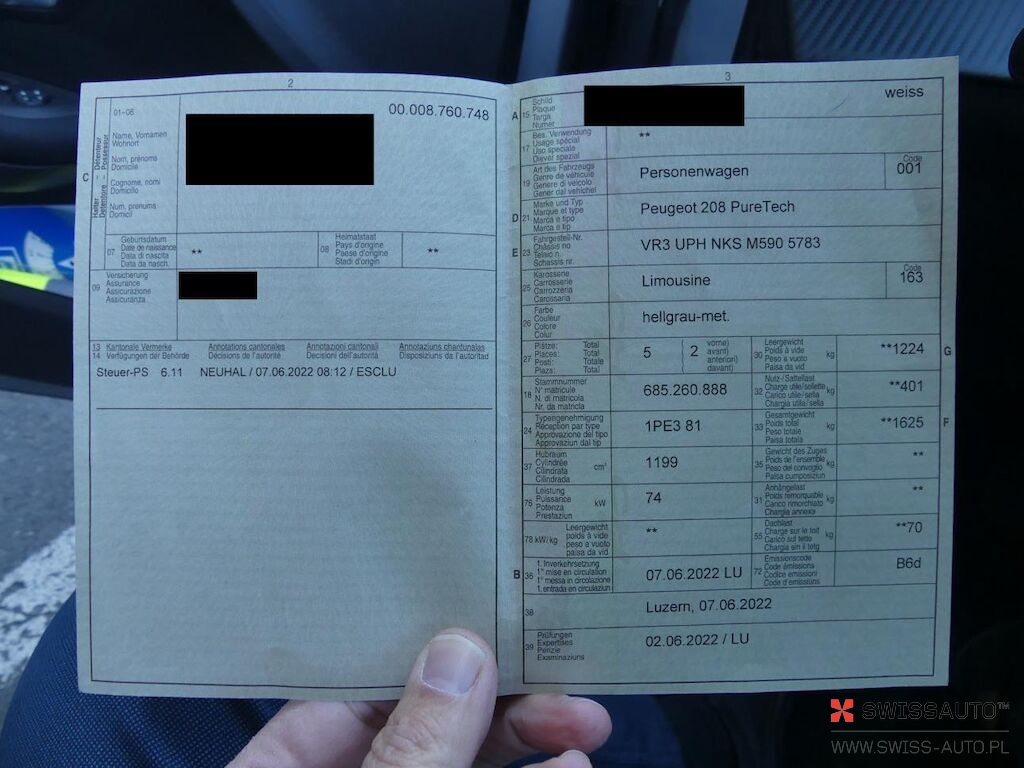 2
01–06
00.008.760.748
C
Halter – Détenteur
Detentore – Possessur
Name, Vornamen
Wohnort
Nom, prénoms
Domicile
Cognome, nomi
Domicilio
Num, prenums
Domicil
07
Geburtsdatum
Date de naissance
Data di nascita
Data da nasch.
**
08
Heimatstaat
Pays d'origine
Paese d'origine
Stadi d'origin
**
09
Versicherung
Assurance
Assicurazione
Assicuranza
13 Kantonale Vermerke Annotations cantonales Annotazioni cantonali Annotaziuns chantunalas
14 Verfügungen der Behörde Décisions de l'autorité Decisioni dell'autorità Disposiziuns da l'autoritad
Steuer-PS 6.11 NEUHAL / 07.06.2022 08:12 / ESCLU
3
A 15
Schild
Plaque
Targa
Numer
weiss
17
Bes. Verwendung
Usage spécial
Uso speciale
Diever spezial
**
19
Art des Fahrzeugs
Genre de véhicule
Genere di veicolo
Gener dal vehichel
Personenwagen
Code
001
D 21
Marke und Typ
Marque et type
Marca e tipo
Marca e tip
Peugeot 208 PureTech
E 23
Fahrgestell-Nr.
Châssis no
Telaio n.
Schassis nr.
VR3 UPH NKS M590 5783
25
Karosserie
Carrosserie
Carrozzeria
Carossaria
Limousine
Code
163
26
Farbe
Couleur
Colore
Colur
hellgrau-met.
27
Plätze: Total
Places: Total
Posti: Totale
Plazs: Total
5
2
vorne)
avant)
anteriori)
davant)
30
Leergewicht
Poids à vide
Peso a vuoto
Paisa da vid
kg
**1224
G
18
Stammnummer
N° matricule
N. di matricola
Nr. da matricla
685.260.888
32
Nutz-/Sattellast
Charge utile/sellette
Carico utile/sella
Chargia utila/sella
kg
**401
24
Typengenehmigung
Réception par type
Approvazione del tipo
Approvaziun dal tip
1PE3 81
33
Gesamtgewicht
Poids total
Peso totale
Paisa totala
kg
**1625
F
37
Hubraum
Cylindrée
Cilindrata
Cilindrada
cm³
1199
35
Gewicht des Zuges
Poids de l'ensemble
Peso del convoglio
Paisa cumposiziun
kg
**
76
Leistung
Puissance
Potenza
Prestaziun
kW
74
31
Anhängelast
Poids remorquable
Carico rimorchiato
Chargia annexa
kg
**
78 kW/kg
Leergewicht
poids à vide
peso a vuoto
paisa da vid
**
55
Dachlast
Charge sur le toit
Carico sul tetto
Chargia sin il tetg
kg
**70
B 36
1. Inverkehrsetzung
1re mise en circulation
1a messa in circolazione
1. entrada en circulaziun
07.06.2022 LU
72
Emissionscode
Code émissions
Codice emissioni
Code d'emissiuns
B6d
38
Luzern, 07.06.2022
39
Prüfungen
Expertises
Perizie
Examinaziuns
02.06.2022 / LU
SWISSAUTO™
WWW.SWISS-AUTO.PL